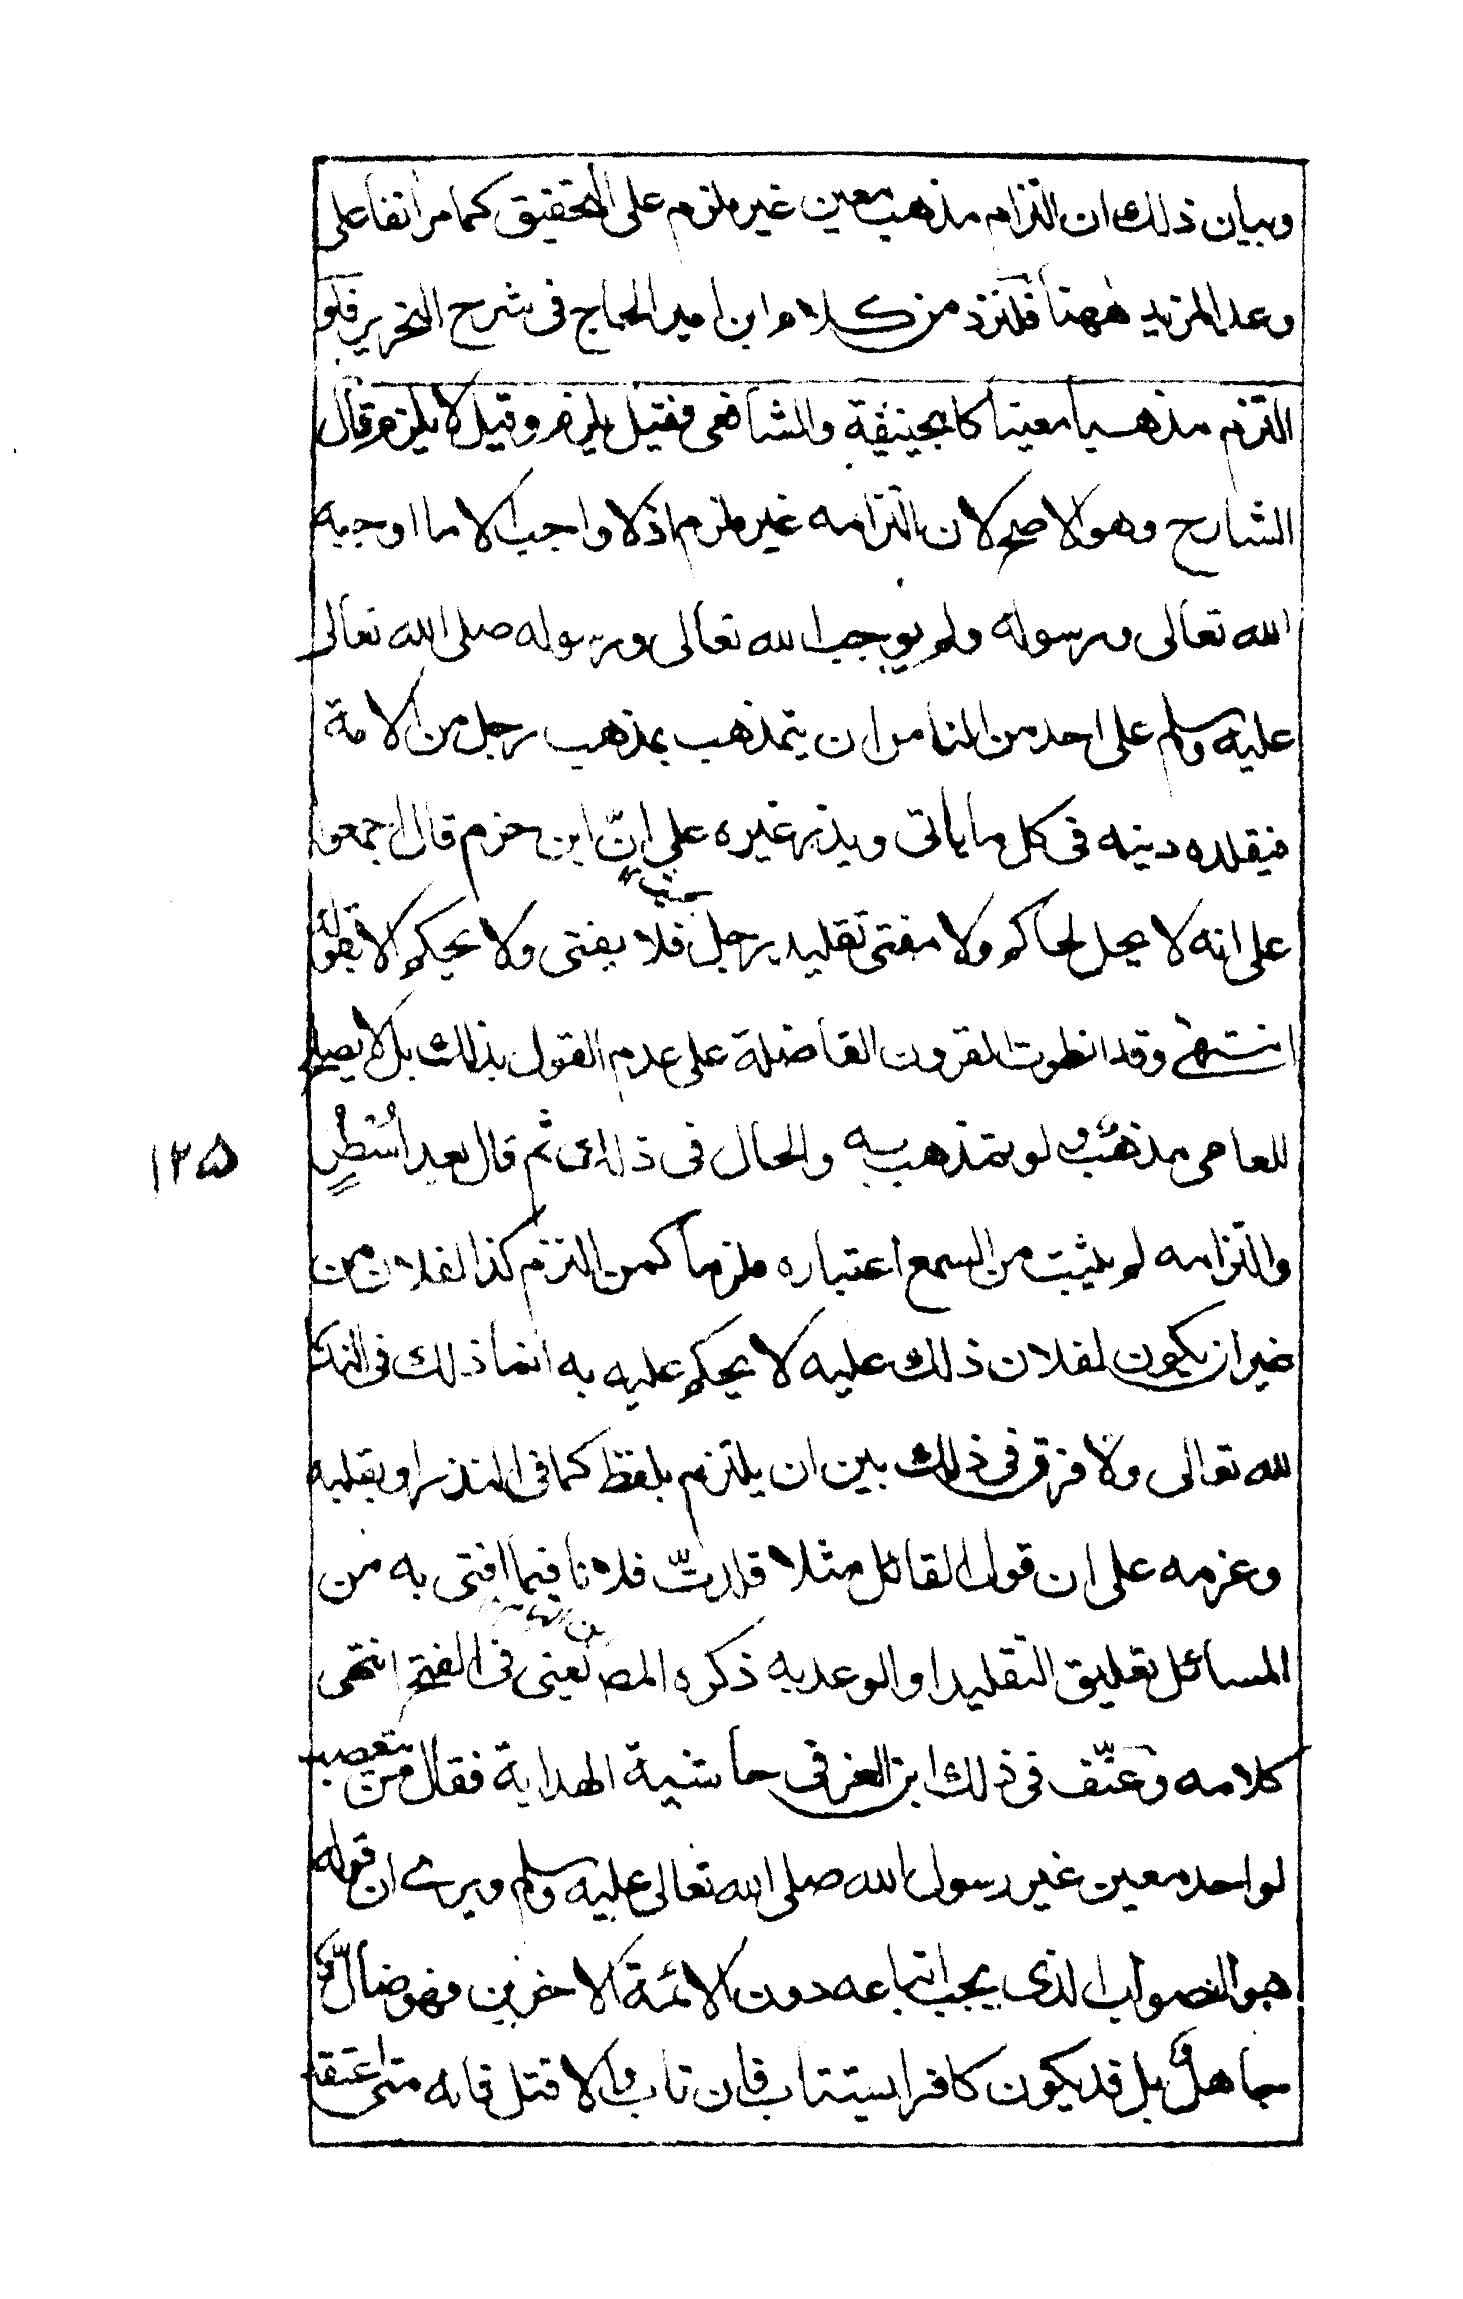 وبيان ذلك ان التزام مذهب معين غير ملزم على التحقيق كما مر انفا على
وعد المزيد ههنا فلنزد من كلام ابن امير الحاج فى شرح التحرير فلو
التزم مذهبا معينا كابيحنيفة والشافعى فقيل يلزم وقيل لا يلزم قال
الشارح وهو الاصح لان التزامه غير ملزم اذ لا واجب الا ما اوجبه
الله تعالى ورسوله ولم يوجب الله تعالى ورسوله صلى الله تعالى
عليه وسلم على احد من الناس ان يتمذهب بمذهب رجل من الامة
فيقلده دينه فى كل ما ياتى ويذر غيره على انّ ابن حزم قال اجمعوا
على انه لا يحل لحاكم ولا مفتى تقليد رجل فلا يفتى ولا يحكم الا بقوله
انتهى وقد انطوت القرون الفاضلة على عدم القول بذلك بل لا يصلح
للعامى مذهب ولو تمذهب به والحال فى ذلك ثم قال بعد اسطر
١٢٥
والتزامه لم يثبت من السمع اعتباره ملزما كمن التزم كذا لفلان من
غير ان يكون لفلان ذلك عليه لا يحكم عليه به انما ذلك فى النذر
لله تعالى ولا فرق فى ذلك بين ان يلتزم بلفظ كما فى النذر او بقلبه
وعزمه على ان قول القائل مثلا قلدتّ فلانا فيما افتى به من
المسائل تعليق التقليد او الوعد به ذكره المص يعنى فى الفتح انتهى
كلامه وعنّف فى ذلك ابن العز فى حاشية الهداية فقال من يتعصب
لواحد معين غير رسول الله صلى الله تعالى عليه وسلم ويرى ان قوله
هو الصواب الذى يجب اتباعه دون الائمة الاخرين فهو ضالّ
جاهل بل قد يكون كافرا يستتاب فان تاب والا قتل فانه متى اعتقد